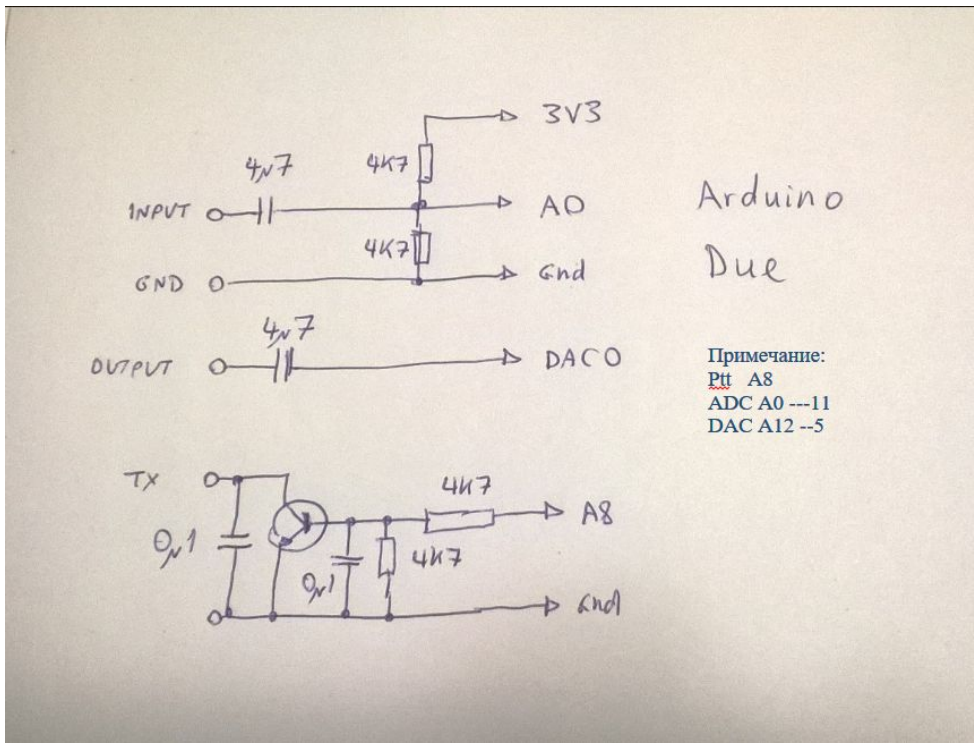 3V3
4µ7
4K7
INPUT
A0
Arduino
4K7
GND
Gnd
Due
4µ7
OUTPUT
DAC0
Примечание:
Ptt A8
ADC A0 ---11
DAC A12 --5
TX
4K7
A8
0µ1
4K7
0µ1
Gnd